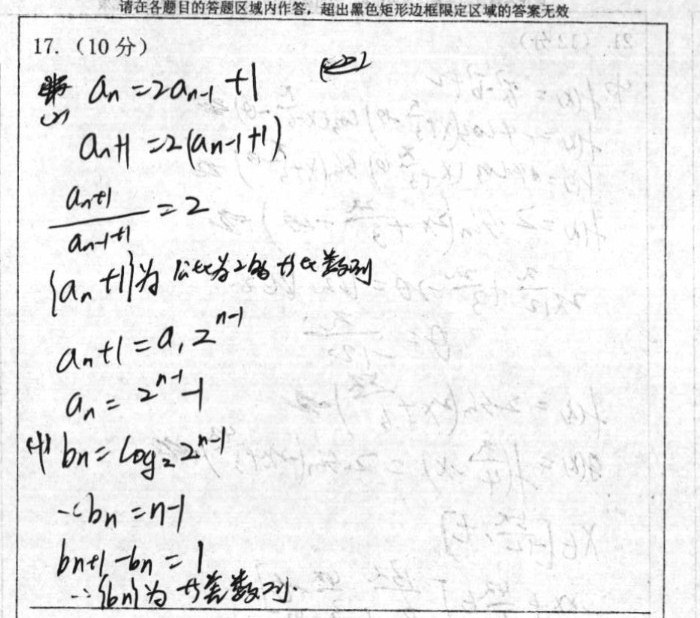 请在各题目的答题区域内作答，超出黑色矩形边框限定区域的答案无效
17.（10分）
(1) aₙ=2aₙ₋₁+1
aₙ+1=2(aₙ₋₁+1)
(aₙ+1)/(aₙ₋₁+1)=2
{aₙ+1}为公比为2的等比数列
aₙ+1=a₁2ⁿ⁻¹
aₙ=2ⁿ⁻¹-1
bₙ=log₂2ⁿ⁻¹
∴bₙ=n-1
bₙ₊₁-bₙ=1
∴{bₙ}为等差数列.